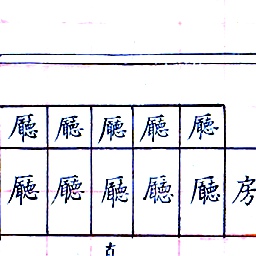 廳 廳 廳 廳 廳
廳 廳 廳 廳 廳 房